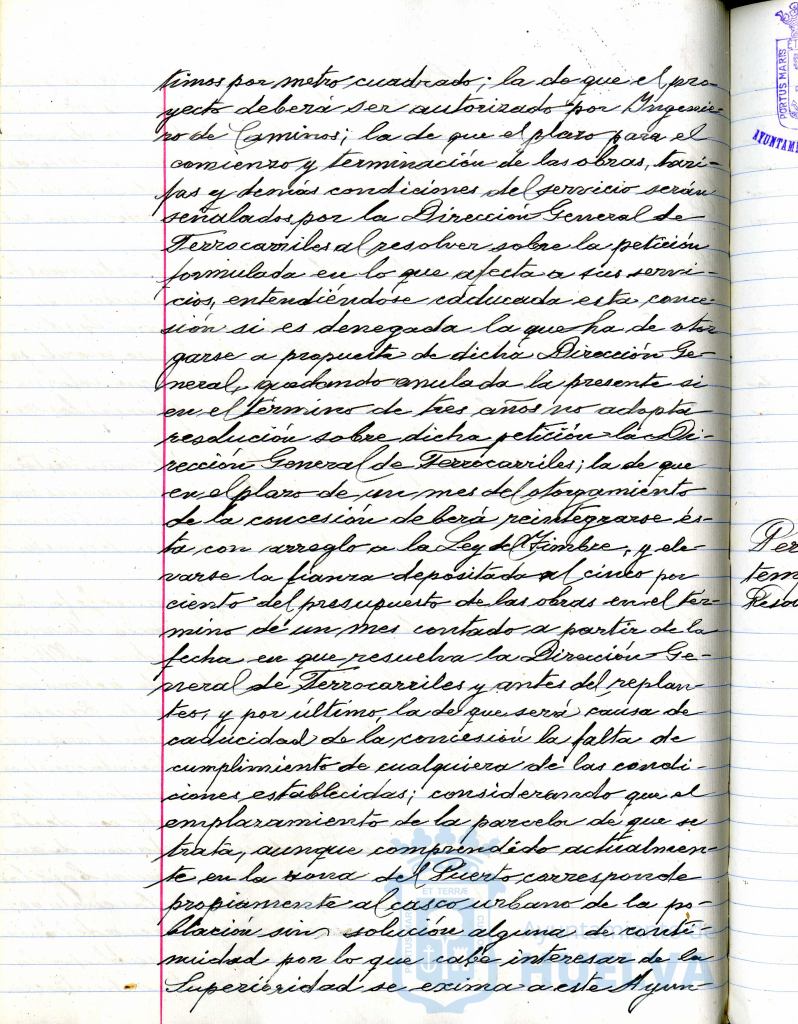 timos por metro cuadrado; la de que el pro-
yecto deberá ser autorizado por Ingenie-
ro de Caminos; la de que el plazo para el
comienzo y terminación de las obras, tari-
fas y demás condiciones del servicio serán
señalados por la Dirección General de
Ferrocarriles al resolver sobre la petición
formulada en lo que afecta a sus servi-
cios, entendiéndose caducada esta conce-
sión si es denegada la que ha de otor-
garse a propuesta de dicha Dirección Ge-
neral, quedando anulada la presente si
en el término de tres años no adopta
resolución sobre dicha petición la Di-
rección General de Ferrocarriles; la de que
en el plazo de un mes del otorgamiento
de la concesión deberá reintegrarse és-
ta con arreglo a la Ley del Timbre, y ele-
varse la fianza depositada al cinco por
ciento del presupuesto de las obras en el tér-
mino de un mes contado a partir de la
fecha en que resuelva la Dirección Ge-
neral de Ferrocarriles y antes del replan-
teo, y por último, la de que será causa de
caducidad de la concesión la falta de
cumplimiento de cualquiera de las condi-
ciones establecidas; considerando que el
emplazamiento de la parcela de que se
trata, aunque comprendido actualmen-
te en la zona del Puerto corresponde
propiamente al casco urbano de la po-
blación sin solución alguna de conti-
nuidad por lo que cabe interesar de la
Superioridad se exima a este Ayun-
PORTUS MARIS
AYUNTAM
Per
tem
Resa
ET TERRÆ
PORTUS MARIS
CUS
Ayuntamiento de
HUELVA